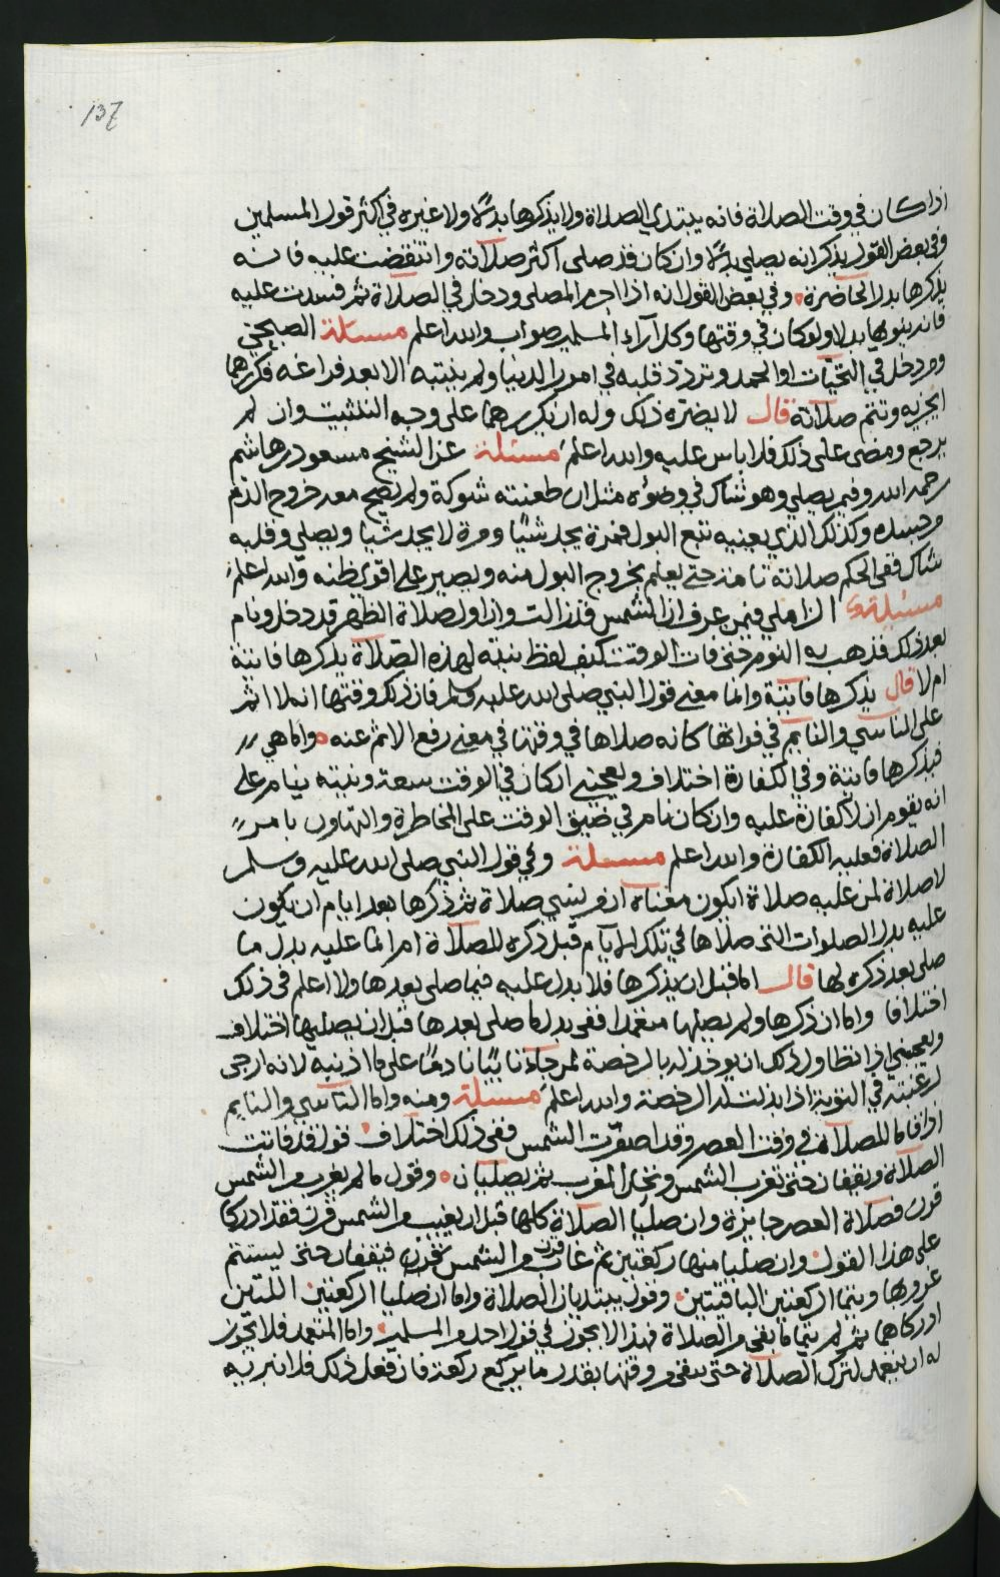 137
اذا كان في وقت الصلاة فانه يبتدي الصلاة ولا يذكرها بدلًا ولا غيره في اكثر قول المسلمين
وفي بعض القول يذكر انه يصلي بدلًا وان كان قد صلى اكثر صلاته وانتقضت عليه فانه
يذكرها بدل الحاضرة وفي بعض القول انه اذا احرم المصلي ودخل في الصلاة ثم فسدت عليه
فانه ينويها بدلا ولو كان في وقتها وكل آراء المسلمين صواب والله اعلم مسئلة الصبحي
ومن دخل في التحيّات او الحمد وتردد قلبه في امور الدنيا ولم ينتبه الا بعد فراغه فكررهما
ايجزيه وتتم صلاته قال لا يضره ذلك وله ان يكررهما على وجه التثبت وان لم
يرجع ومضى على ذلك فلا باس عليه والله اعلم مسئلة عن الشيخ مسعود بن هاشم
رحمه الله وفيمن يصلي وهو شاك في وضوءه مثل ان طعنته شوكة ولم يصح معه خروج الدم
من جسده وكذلك الذي يعنيه تتبع البول فمرة يجد شيئًا ومرة لا يجد شيا ويصلي وقلبه
شاك ففي الحكم صلاته تامة حتى يعلم بخروج البول منه ويصير على اقوى ظنه والله اعلم
مسئلة الزاملي وفيمن عرف ان الشمس قد زالت وان اول صلاة الظهر قد دخل ونام
بعد ذلك فذهب به النوم حتى فات الوقت كيف لفظ نيته لهذه الصلاة يذكرها فايتة
ام لا قال يذكرها فايتة وانما معنى قول النبي صلى الله عليه وسلم فان ذلك وقتها انه لا اثم
على الناسي والنايم في فواتها كانه صلاها في وقتها في معنى رفع الاثم عنه واما هي
فيذكرها فايتة وفي الكفارة اختلاف ويعجبني ان كان في الوقت سعة ونيته ينام على
انه يقوم ان لا كفارة عليه وان كان نام في ضيق الوقت على المخاطرة والتهاون بامر
الصلاة فعليه الكفارة والله اعلم مسئلة وفي قول النبي صلى الله عليه وسلم
لا صلاة لمن عليه صلاة ايكون معناه ان من نسي صلاة ثم ذكرها بعد ايام ان يكون
عليه بدل الصلوات التي صلاها في تلك الايام قبل ذكره للصلاة ام انما عليه بدل ما
صلى بعد ذكره لها قال اما قبل ان يذكرها فلا بدل عليه فيما صلى بعدها ولا اعلم في ذلك
اختلافا واما ان ذكرها ولم يصلها متعمدا ففي بدل ما صلى بعدها قبل ان يصليها اختلاف
ويعجبني اذا تطاول ذلك ان يوخذ له بالرخصة لمن جاء تايبًا نادمًا على ما اذنبه لانه ارجى
لرغبته في التوبة اذا بذلت له الرخصة والله اعلم مسئلة ومنه واما الناسي والنايم
اذا قاما للصلاة في وقت العصر وقد اصفرّت الشمس ففي ذلك اختلاف قول قد فاتت
الصلاة ويقفان حتى تغرب الشمس وتحل المغرب ثم يصليان وقول ما لم يغرب من الشمس
قرن فصلاة العصر جايزة وان صليا الصلاة كلها قبل ان يغيب من الشمس قرن فقد ادركا
على هذا القول وان صليا منها ركعتين ثم غاب من الشمس قرن فيقفان حتى يستتم
غروبها ويتما الركعتين الباقيتين وقول يبتديان الصلاة واما ان صليا الركعتين اللتين
ادركاهما ثم لم يتما ما بقي من الصلاة فهذا لا يجوز في قول احد من المسلمين واما المتعمد فلا يجوز
له ان يتعمد لترك الصلاة حتى يبقى من وقتها بقدر ما يركع ركعة فان فعل ذلك فلا نبريه